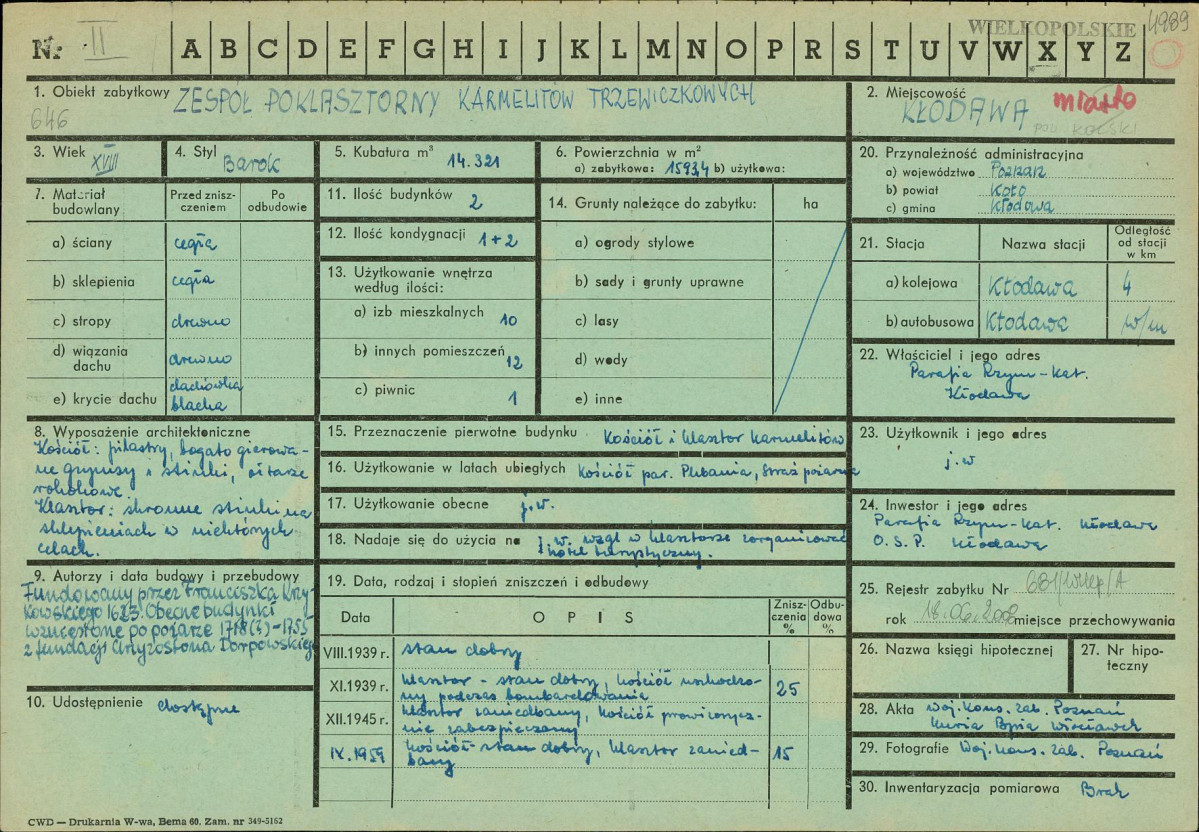 Nr. II A B C D E F G H I J K L M N O P R S T U V W X Y Z
WIELKOPOLSKIE
4989
1. Obiekt zabytkowy ZESPÓŁ POKLASZTORNY KARMELITÓW TRZEWICZKOWYCH
646
2. Miejscowość
KŁODAWA miasto
KOLSKI
3. Wiek XVIII
4. Styl Barok
5. Kubatura m³ 14.321
6. Powierzchnia w m²
a) zabytkowa: 1593,4 b) użytkowa:
20. Przynależność administracyjna
a) województwo Poznań
b) powiat Koło
c) gmina Kłodawa
7. Materiał budowlany
Przed zniszczeniem
Po odbudowie
a) ściany cegła
b) sklepienia cegła
c) stropy drewno
d) wiązania dachu drewno
e) krycie dachu dachówka
blacha
11. Ilość budynków 2
12. Ilość kondygnacji 1+2
13. Użytkowanie wnętrza
według ilości:
a) izb mieszkalnych 10
b) innych pomieszczeń 12
c) piwnic 1
14. Grunty należące do zabytku: ha
a) ogrody stylowe
b) sady i grunty uprawne
c) lasy
d) wody
e) inne
21. Stacja Nazwa stacji
Odległość
od stacji
w km
a) kolejowa Kłodawa 4
b) autobusowa Kłodawa w/m
22. Właściciel i jego adres
Parafia Rzym-Kat.
Kłodawa
8. Wyposażenie architektoniczne
Kościół: pilastry, bogato gierowa-
ne gzymsy i stiuki, ołtarze
rokokowe.
Klasztor: skromne stiuki na
sklepieniach w niektórych
celach.
15. Przeznaczenie pierwotne budynku Kościół i klasztor Karmelitów
16. Użytkowanie w latach ubiegłych Kościół par. Plebania, Straż pożarna
17. Użytkowanie obecne j.w.
18. Nadaje się do użycia na j.w. wzgl w klasztorze zorganizować
hotel turystyczny.
23. Użytkownik i jego adres
j.w
24. Inwestor i jego adres
Parafia Rzym-Kat. Kłodawa
O.S.P. Kłodawa
9. Autorzy i data budowy i przebudowy
Fundowany przez Franciszka Krzy-
kowskiego 1623. Obecne budynki
wzniesione po pożarze 1718(?)-1755
z fundacji Chryzostona Dorpowskiego
10. Udostępnienie dostępne
19. Data, rodzaj i stopień zniszczeń i odbudowy
Data O P I S
Znisz-
czenia
%
Odbu-
dowa
%
VIII.1939 r. stan dobry
XI.1939 r. Klasztor - stan dobry, kościół uszkodzo-
ny podczas bombardowania 25
XII.1945 r. Klasztor zaniedbany, kościół prowizorycz-
nie zabezpieczony
IX.1959 Kościół-stan dobry, klasztor zanied-
bany 15
25. Rejestr zabytku Nr 681/Wlkp/A
rok 18.06.2008 miejsce przechowywania
26. Nazwa księgi hipotecznej
27. Nr hipo-
teczny
28. Akta Woj. Kons. Zab. Poznań
Kuria Bpia Włocławek
29. Fotografie Woj. Kons. Zab. Poznań
30. Inwentaryzacja pomiarowa Brak
CWD — Drukarnia W-wa, Bema 60. Zam. nr 349-5162